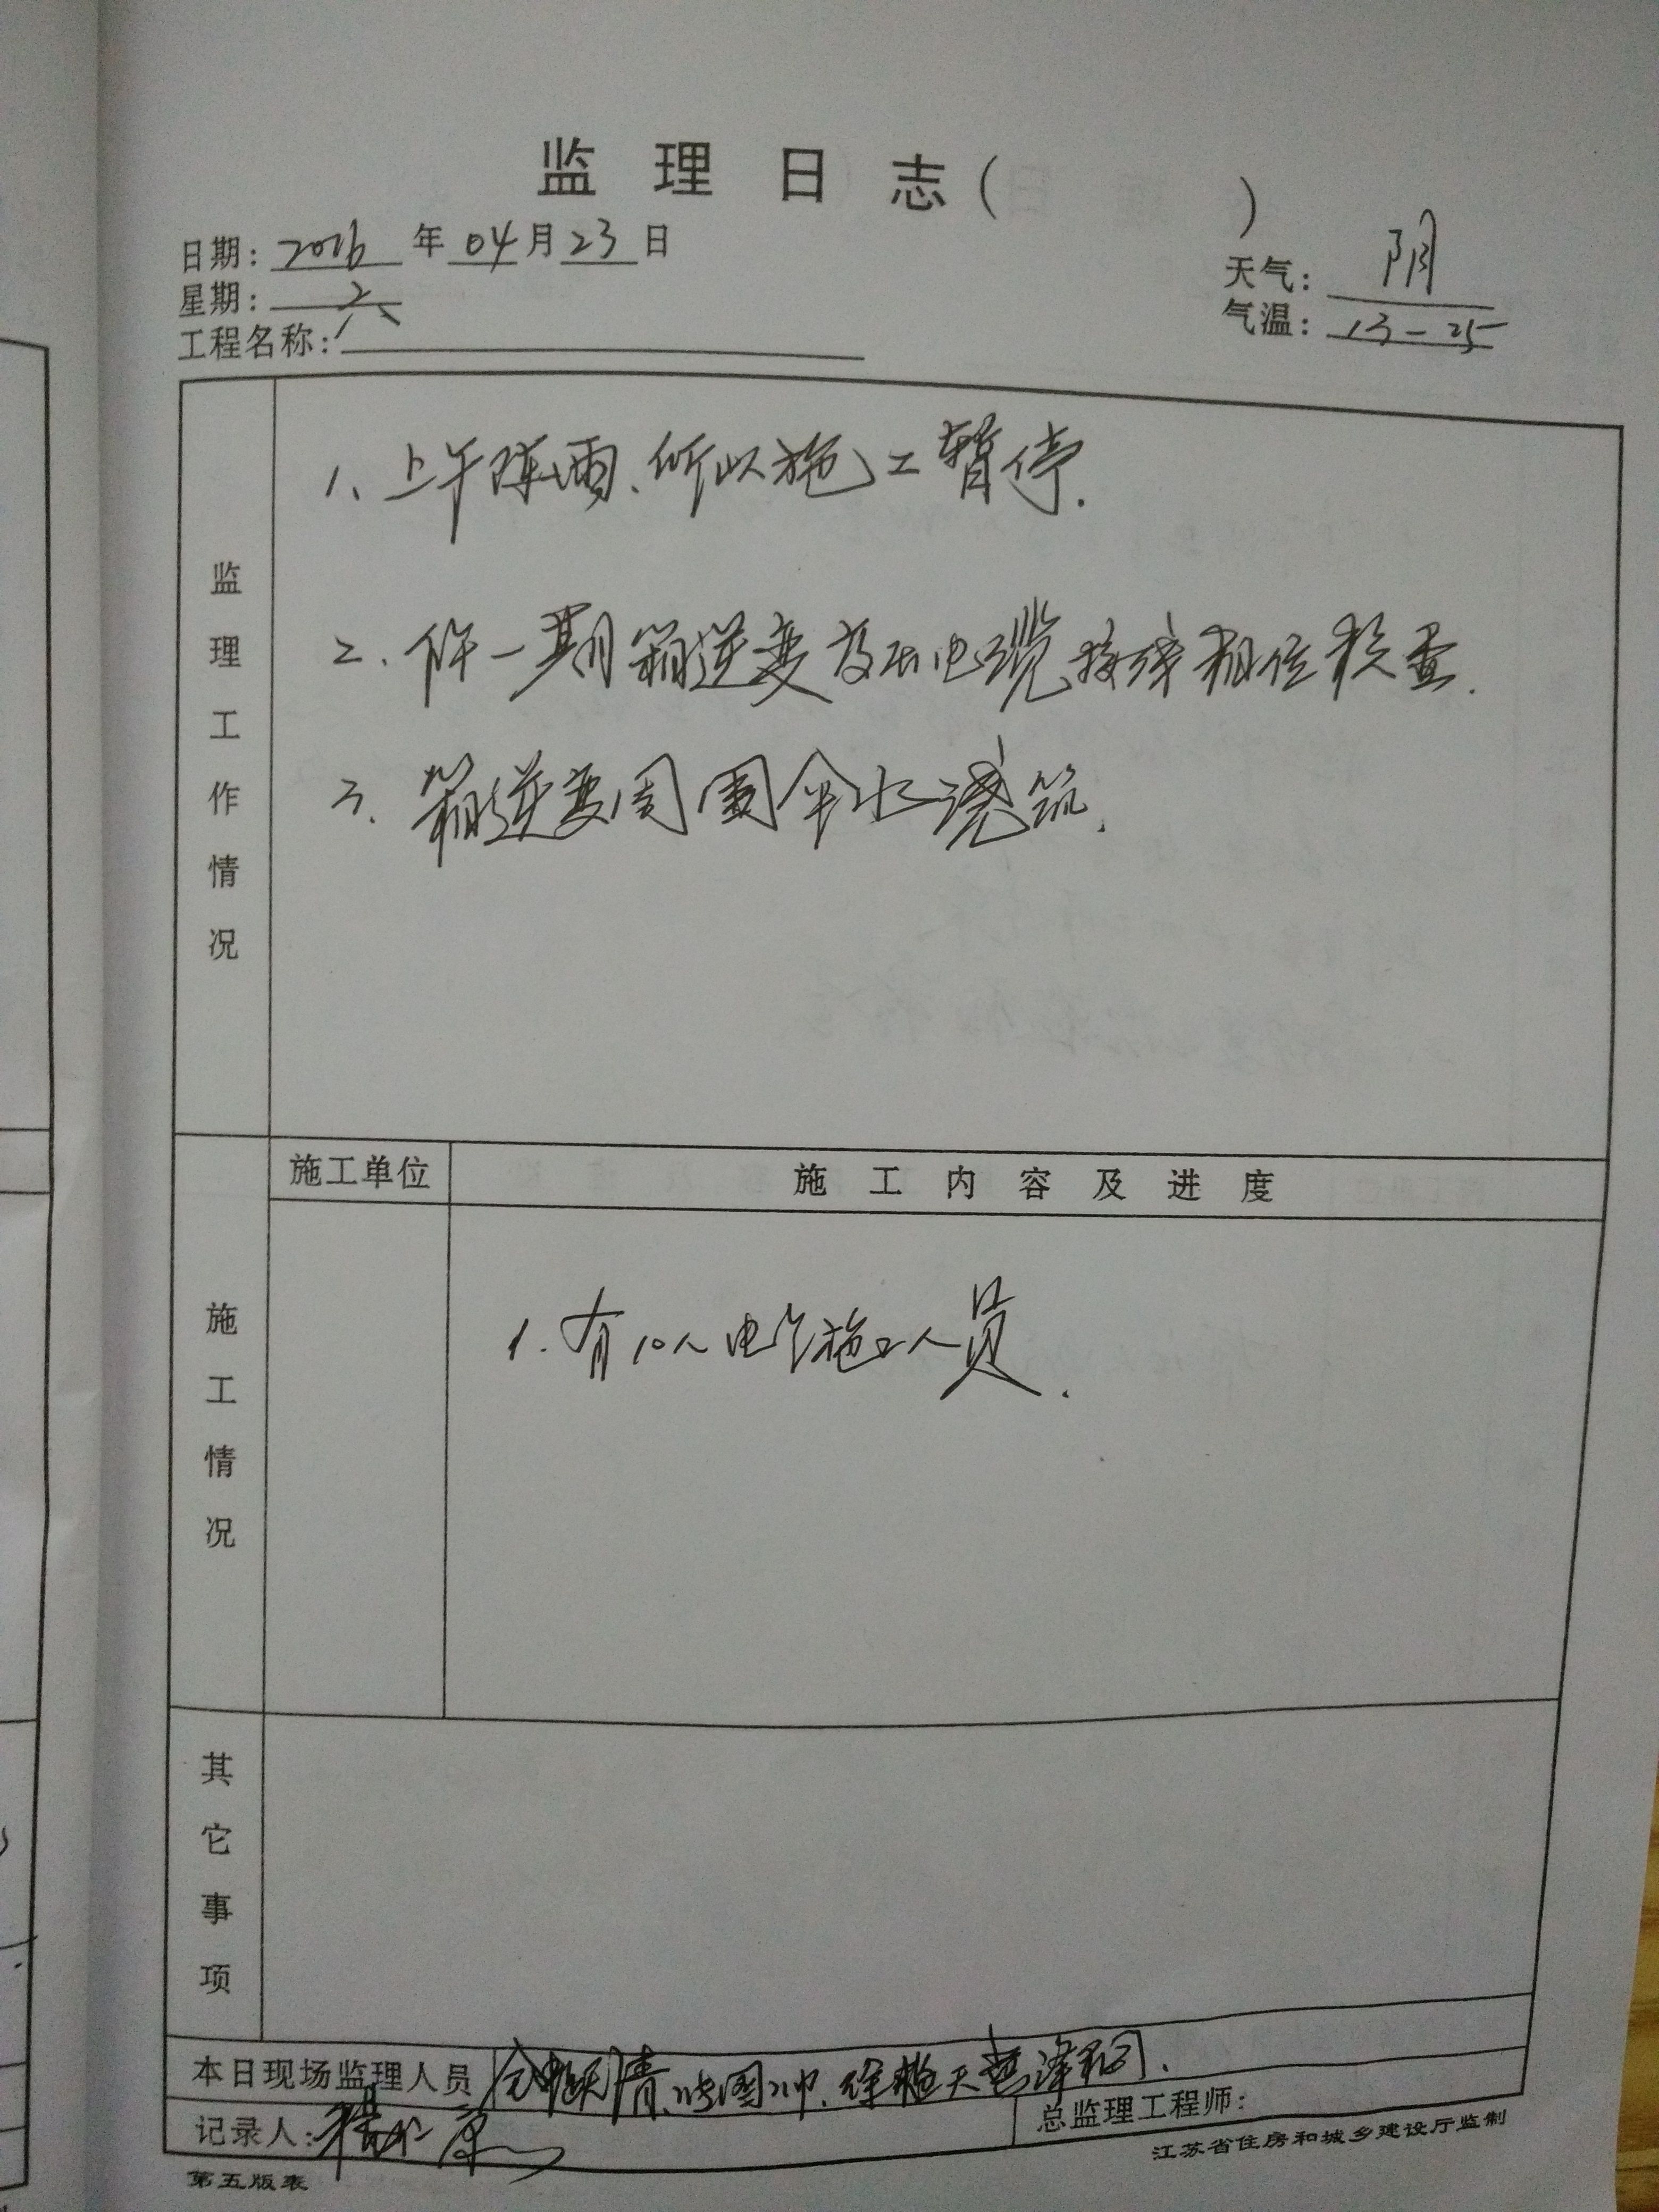 监理日志( )
日期: 2016 年 04 月 23 日
星期: 六
天气: 阴
工程名称:
气温: 13-25
监理工作情况
1、上午阵雨、所以施工暂停.
2、作一期箱逆变高压电缆接线相位核查.
3、箱逆变周围散水浇筑.
施工情况
施工单位
施工内容及进度
1.有10人电气施工人员.
其它事项
本日现场监理人员
记录人:
总监理工程师:
第五版表
江苏省住房和城乡建设厅监制